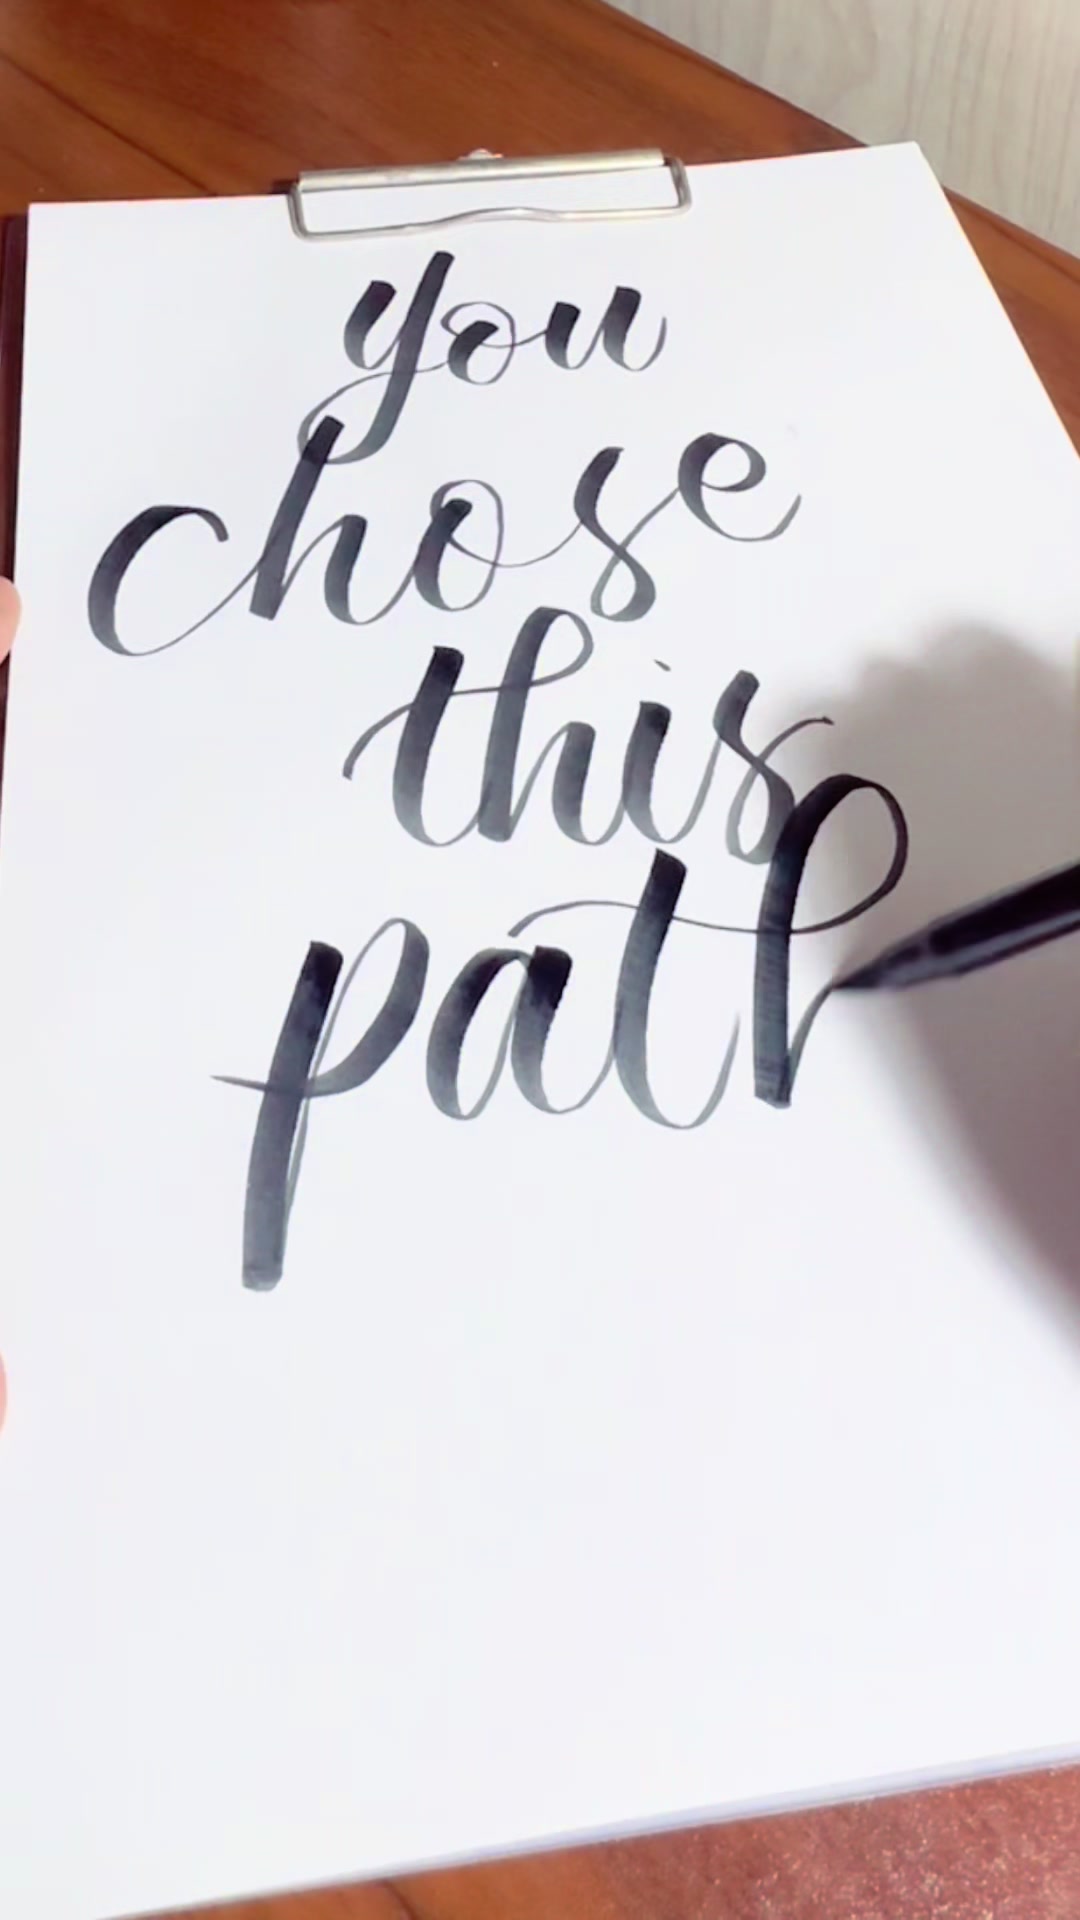 you
chose
this
path